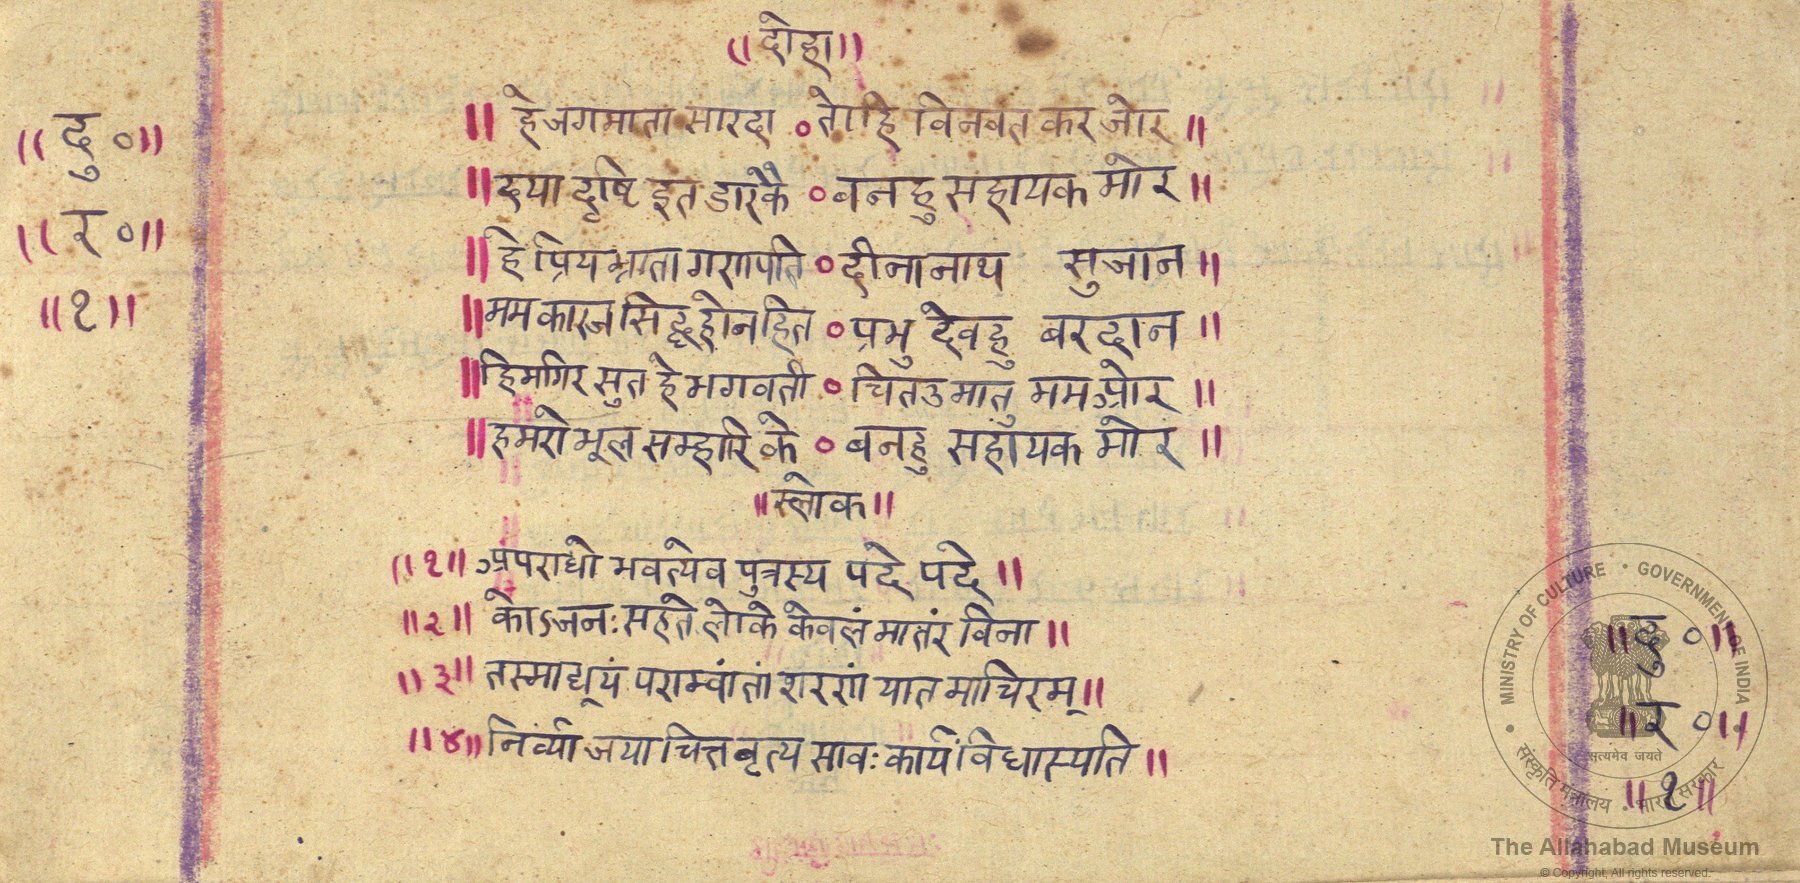 ॥ दोहा ॥
॥ दु ० ॥
॥ र ० ॥
॥ १ ॥
॥ हेजगमाता सारदा ० तोहि विनवत कर जोर ॥
॥ दया दृष्टि इत डारकै ० बनहु सहायक मोर ॥
॥ हे प्रिय भ्राता गणपति ० दीनानाथ सुजान ॥
॥ मम कारज सिद्ध होन हित ० प्रभु देवहु बरदान ॥
॥ हिमगिर सुत हे भगवती ० चितउ मातु मम ओर ॥
॥ हमरो भूल सम्हारि के ० बनहु सहायक मोर ॥
॥ स्लोक ॥
॥ १ ॥ अपराधो भवत्येव पुत्रस्य पदे पदे ॥
॥ २ ॥ कोऽजनः सहते लोके केवलं मातरं विना ॥
॥ ३ ॥ तस्माद्यूयं पराम्वांतां शरणं यात माचिरम् ॥
॥ ४ ॥ निर्व्याजया चित्तवृत्य सावः कार्यं विधास्यति ॥
॥ दु ० ॥
॥ र ० ॥
॥ १ ॥
MINISTRY OF CULTURE • GOVERNMENT OF INDIA
सत्यमेव जयते
संस्कृति मंत्रालय • भारत सरकार
The Allahabad Museum
© Copyright, All rights reserved.